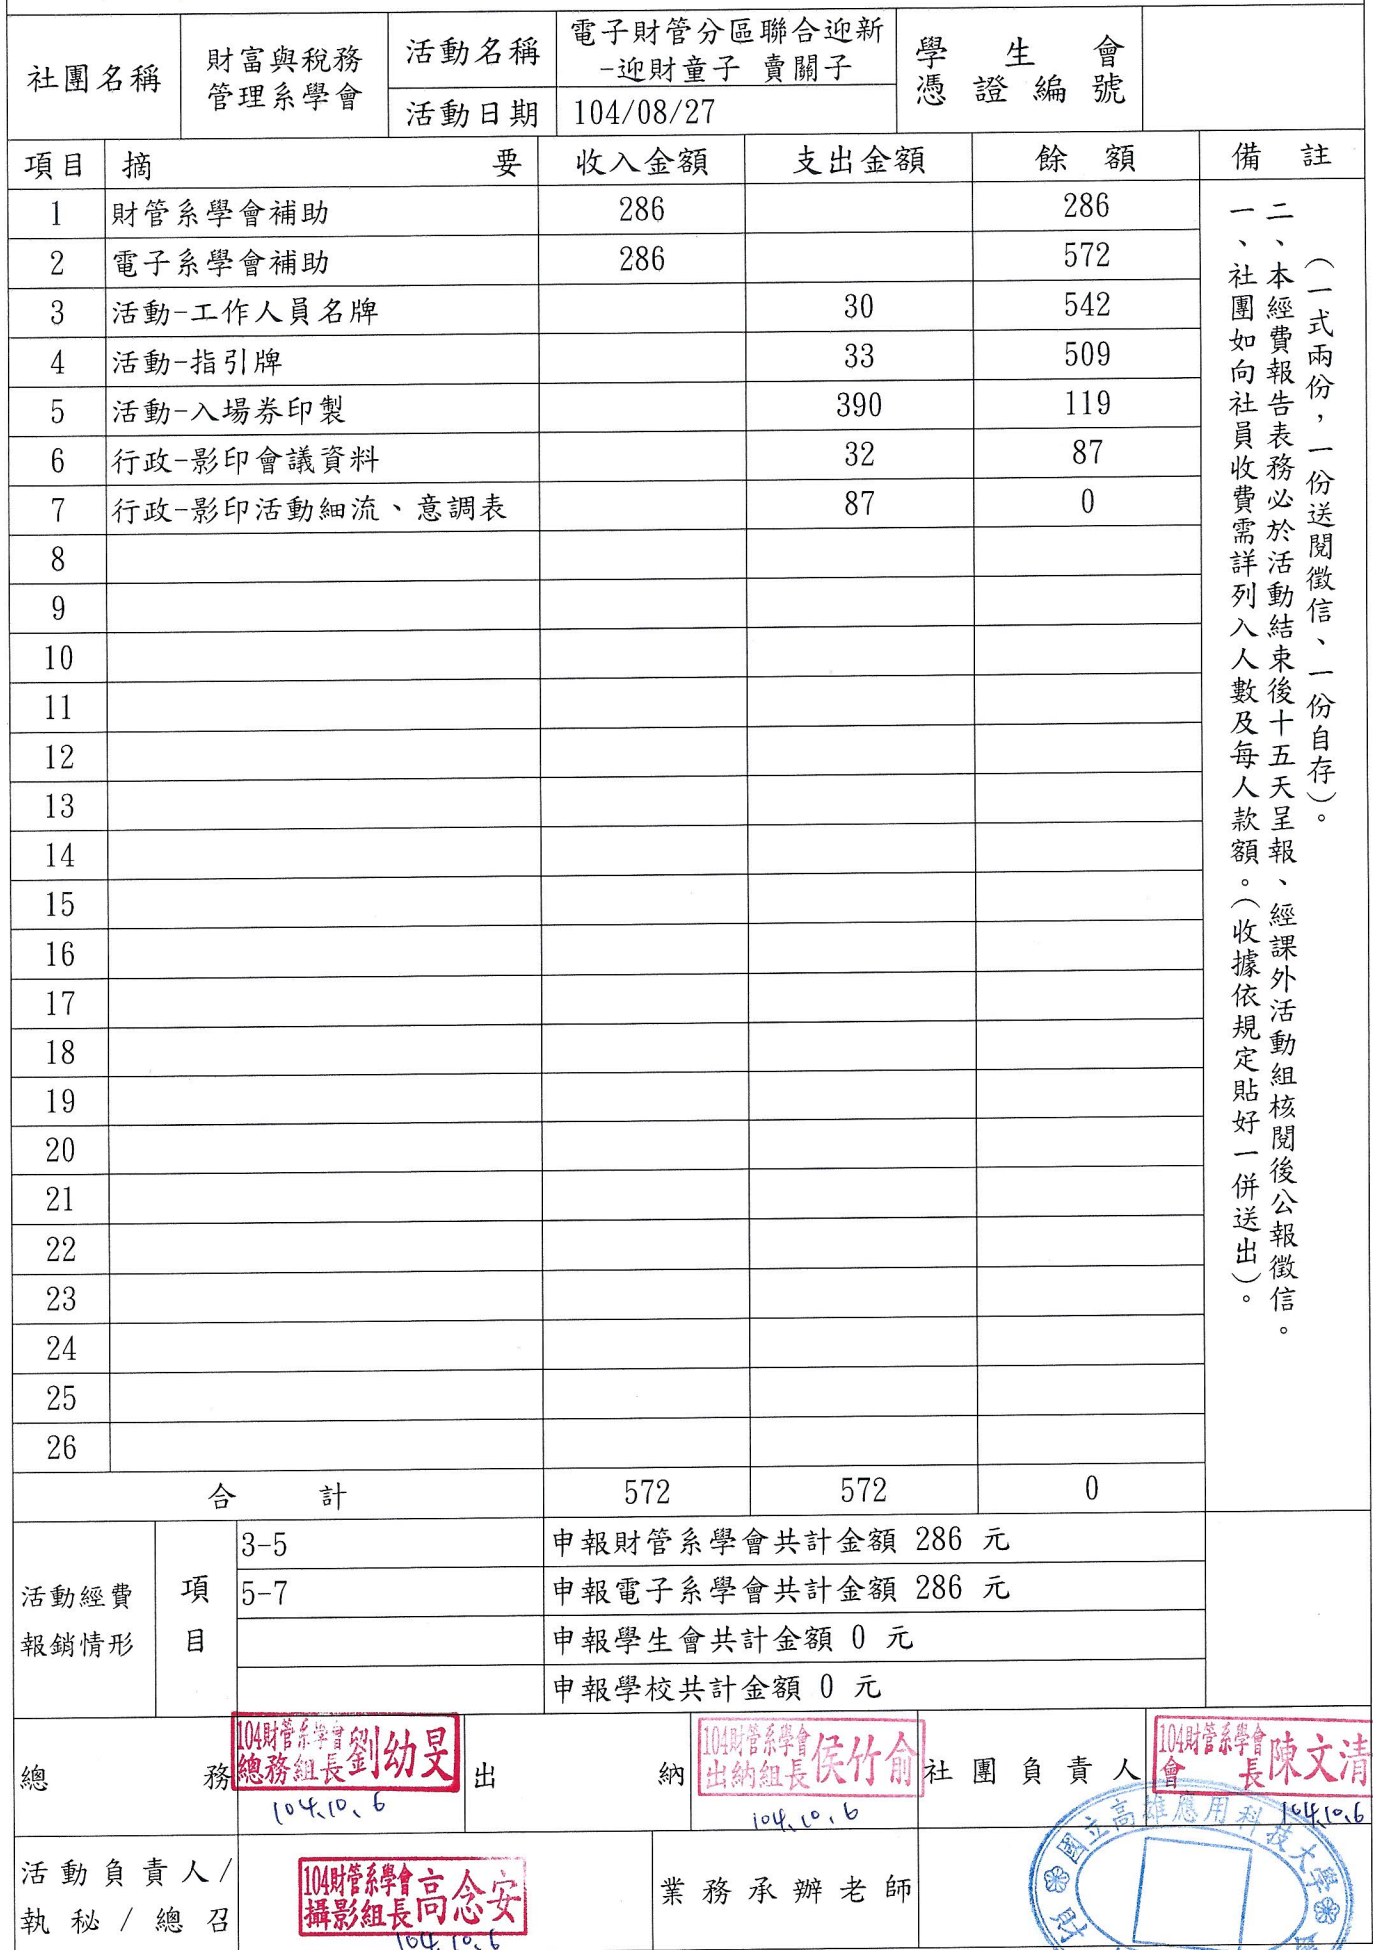 社團名稱 財富與稅務管理系學會 活動名稱 電子財管分區聯合迎新-迎財童子 賣關子 學生會憑證編號
活動日期 104/08/27
項目 摘要 收入金額 支出金額 餘額 備註
1 財管系學會補助 286 286
2 電子系學會補助 286 572
3 活動-工作人員名牌 30 542
4 活動-指引牌 33 509
5 活動-入場券印製 390 119
6 行政-影印會議資料 32 87
7 行政-影印活動細流、意調表 87 0
8
9
10
11
12
13
14
15
16
17
18
19
20
21
22
23
24
25
26
一、社團如向社員收費需詳列入人數及每人款額。(收據依規定貼好一併送出)。
二、本經費報告表務必於活動結束後十五天呈報、經課外活動組核閱後公報徵信。
(一式兩份，一份送閱徵信、一份自存)。
合計 572 572 0
活動經費報銷情形 項目
3-5 申報財管系學會共計金額 286 元
5-7 申報電子系學會共計金額 286 元
申報學生會共計金額 0 元
申報學校共計金額 0 元
總務 104財管系學會總務組長劉幼旻 104.10.6
出納 104財管系學會出納組長侯竹俞 104.10.6
社團負責人 104財管系學會會長陳文清 104.10.6
活動負責人/執秘/總召 104財管系學會攝影組長高念安 104.10.6
業務承辦老師
國立高雄應用科技大學 財